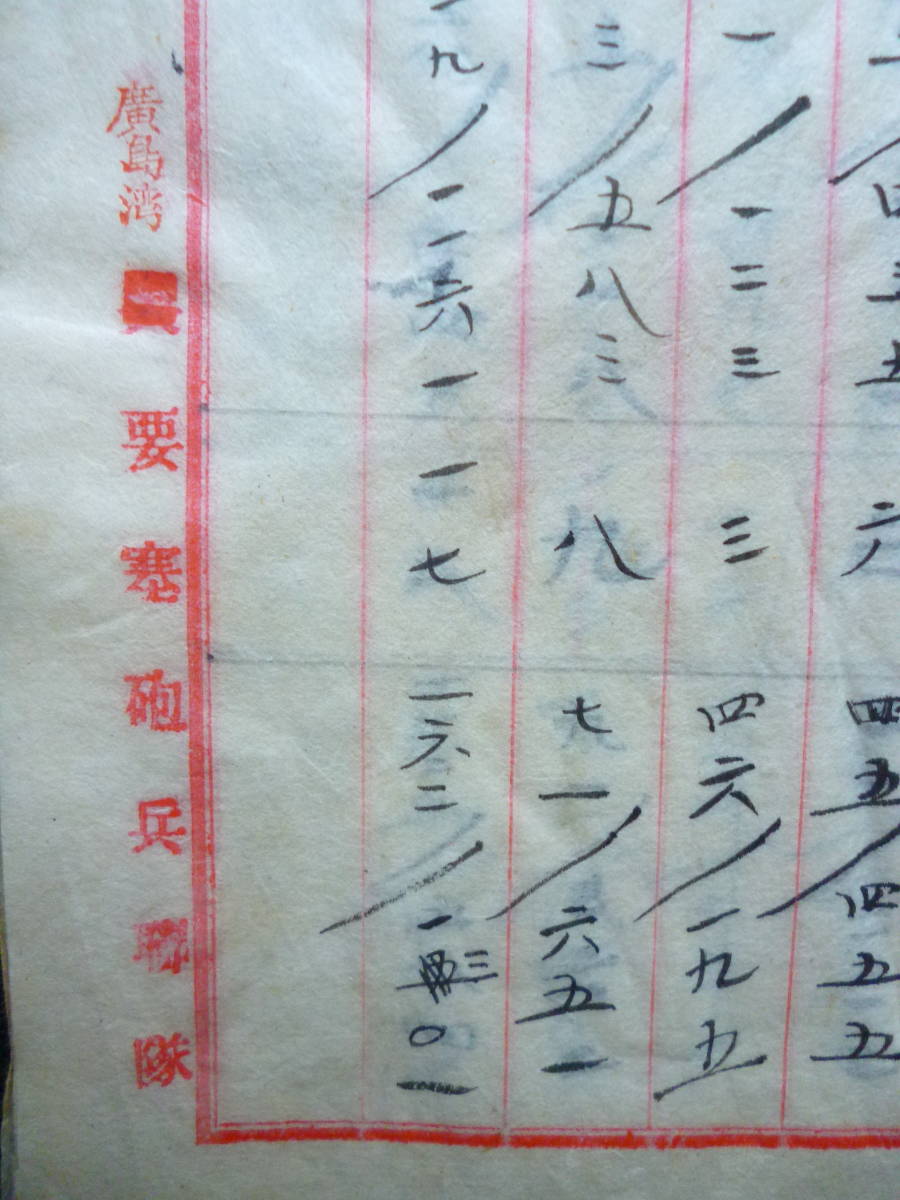 四三五 六 四五／四五五
一／一二三 三 四六／一九五
三／五八三 八 七一／六五一
九／一二六一 一七 一六二／一三〇一
廣島湾要塞砲兵聯隊